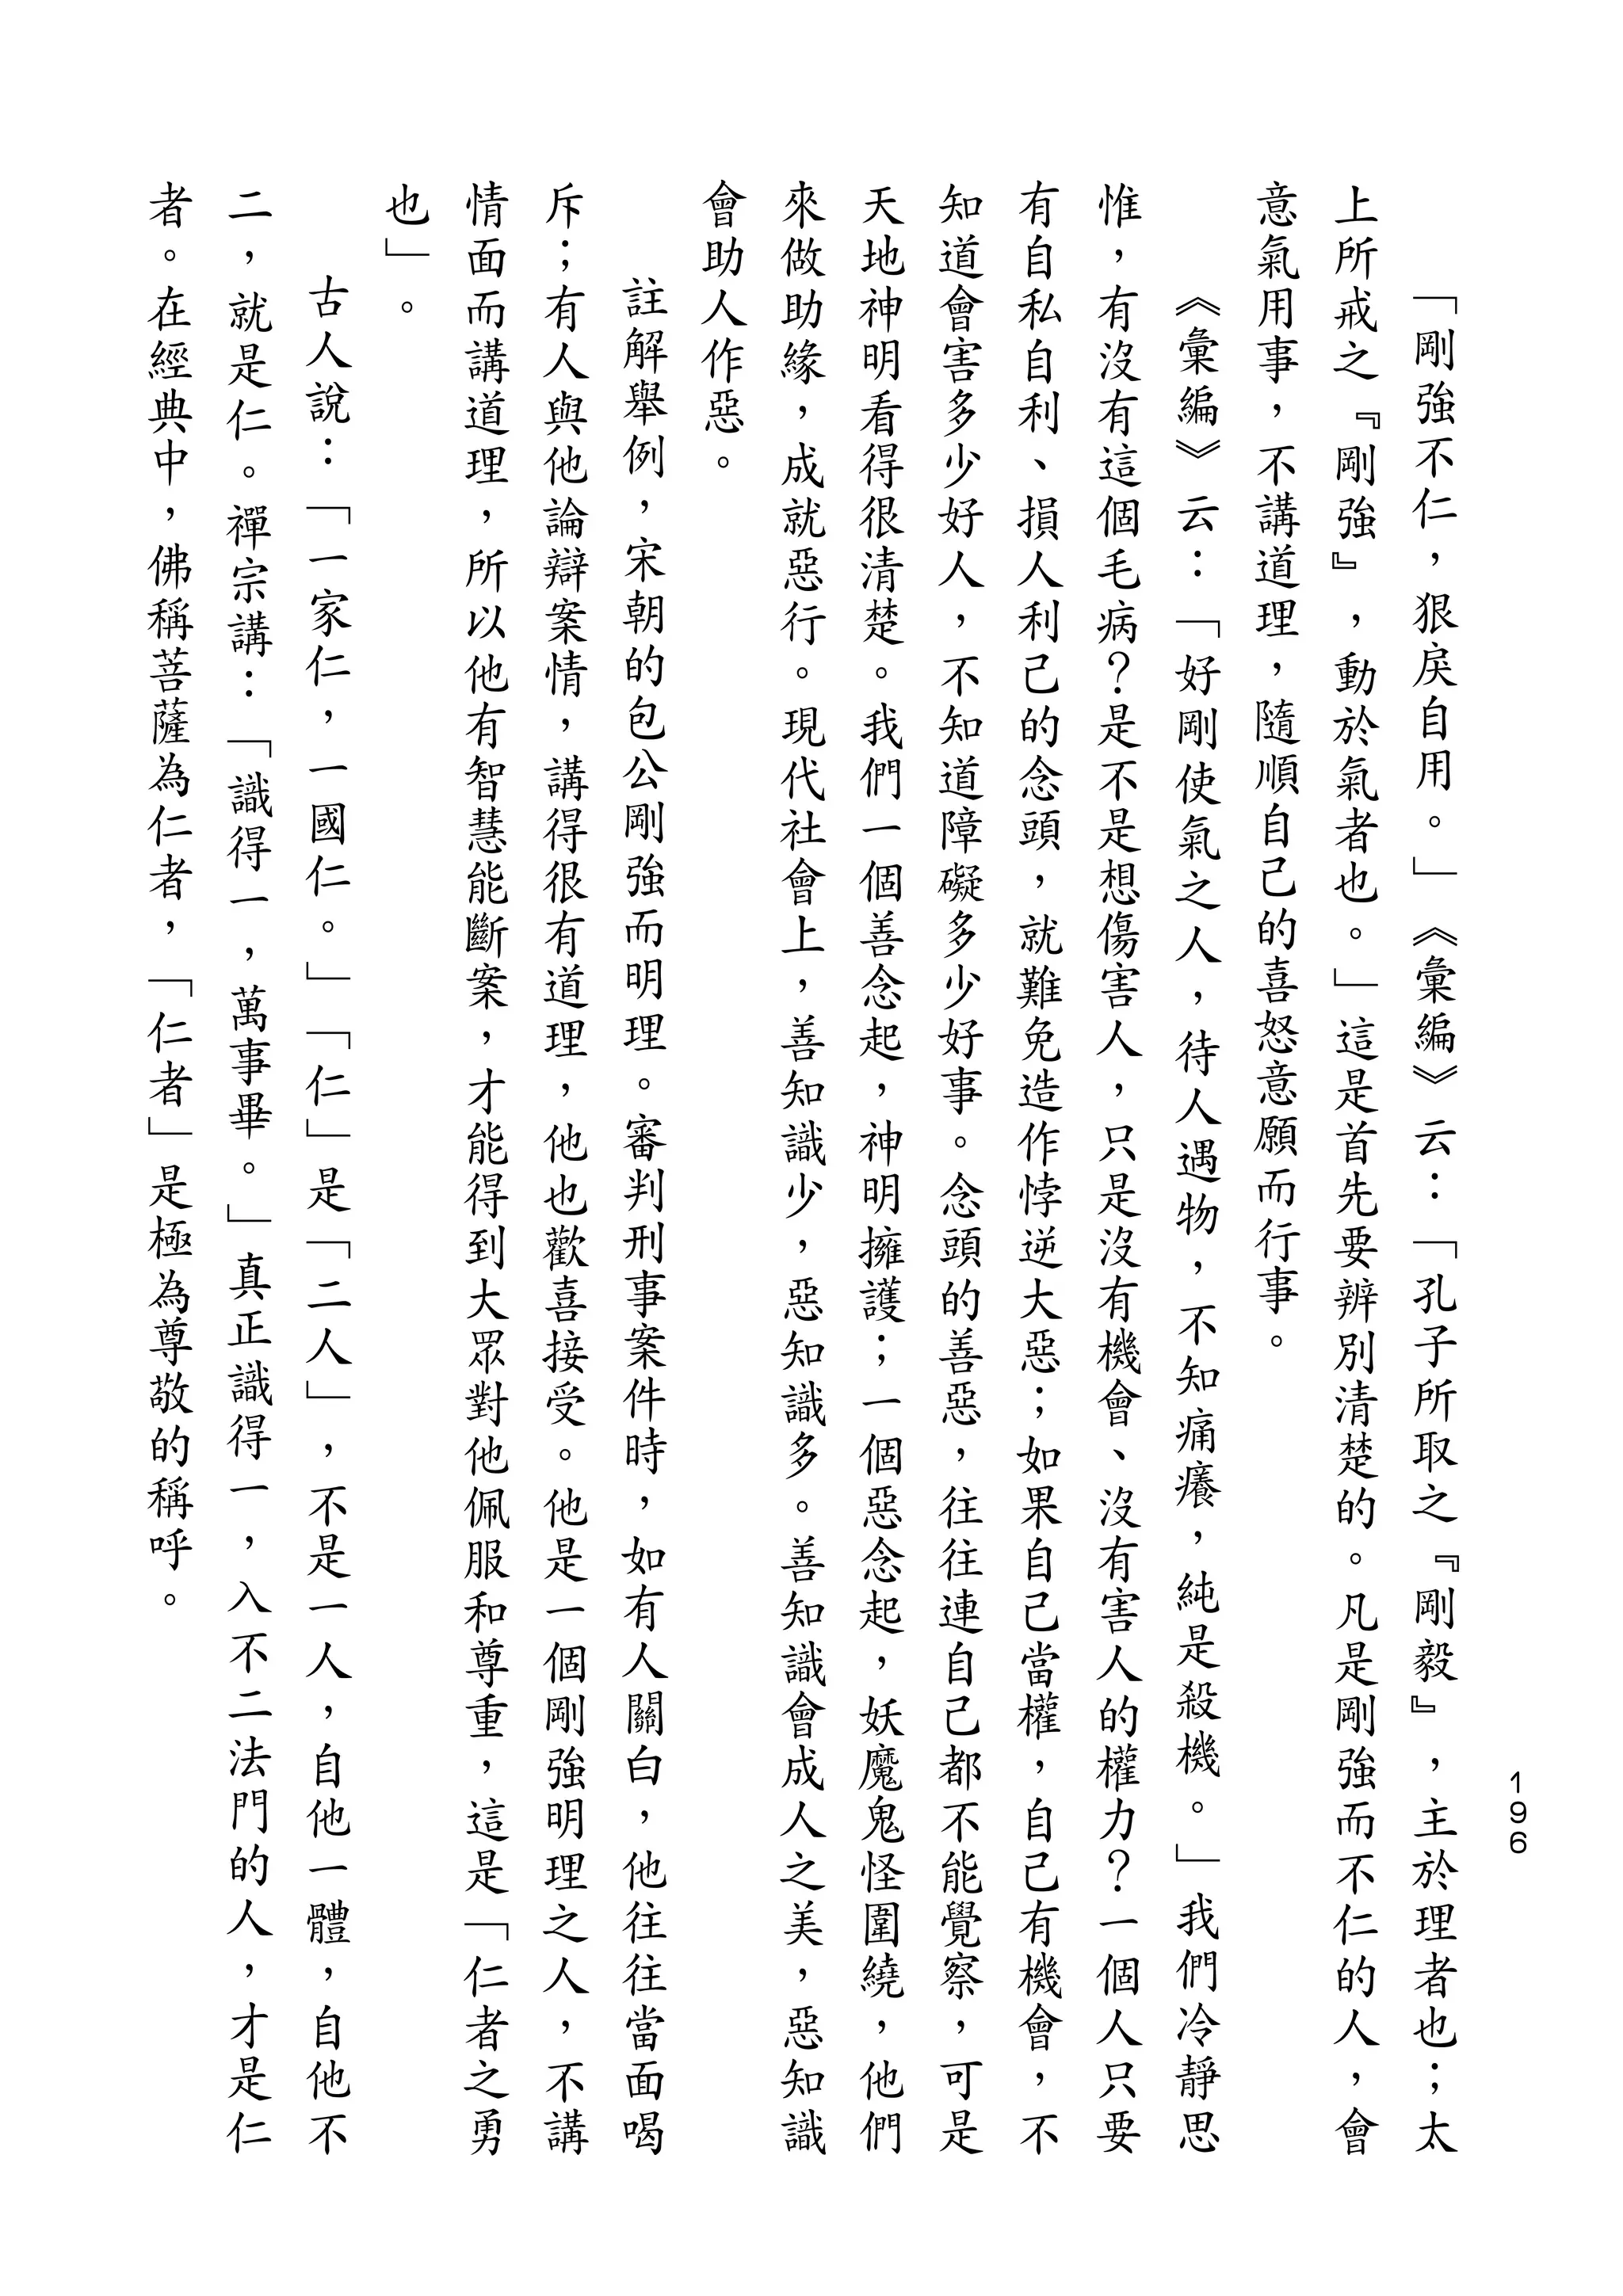 196
「剛強不仁，狠戾自用。」《彙編》云：「孔子所取之『剛毅』，主於理者也；太
上所戒之『剛強』，動於氣者也。」這是首先要辨別清楚的。凡是剛強而不仁的人，會
意氣用事，不講道理，隨順自己的喜怒意願而行事。
《彙編》云：「好剛使氣之人，待人遇物，不知痛癢，純是殺機。」我們冷靜思
惟，有沒有這個毛病？是不是想傷害人，只是沒有機會、沒有害人的權力？一個人只要
有自私自利、損人利己的念頭，就難免造作悖逆大惡；如果自己當權，自己有機會，不
知道會害多少好人，不知道障礙多少好事。念頭的善惡，往往連自己都不能覺察，可是
天地神明看得很清楚。我們一個善念起，神明擁護；一個惡念起，妖魔鬼怪圍繞，他們
來做助緣，成就惡行。現代社會上，善知識少，惡知識多。善知識會成人之美，惡知識
會助人作惡。
註解舉例，宋朝的包公剛強而明理。審判刑事案件時，如有人關白，他往往當面喝
斥；有人與他論辯案情，講得很有道理，他也歡喜接受。他是一個剛強明理之人，不講
情面而講道理，所以他有智慧能斷案，才能得到大眾對他佩服和尊重，這是「仁者之勇
也」。
古人說：「一家仁，一國仁。」「仁」是「二人」，不是一人，自他一體，自他不
二，就是仁。禪宗講：「識得一，萬事畢。」真正識得一，入不二法門的人，才是仁
者。在經典中，佛稱菩薩為仁者，「仁者」是極為尊敬的稱呼。